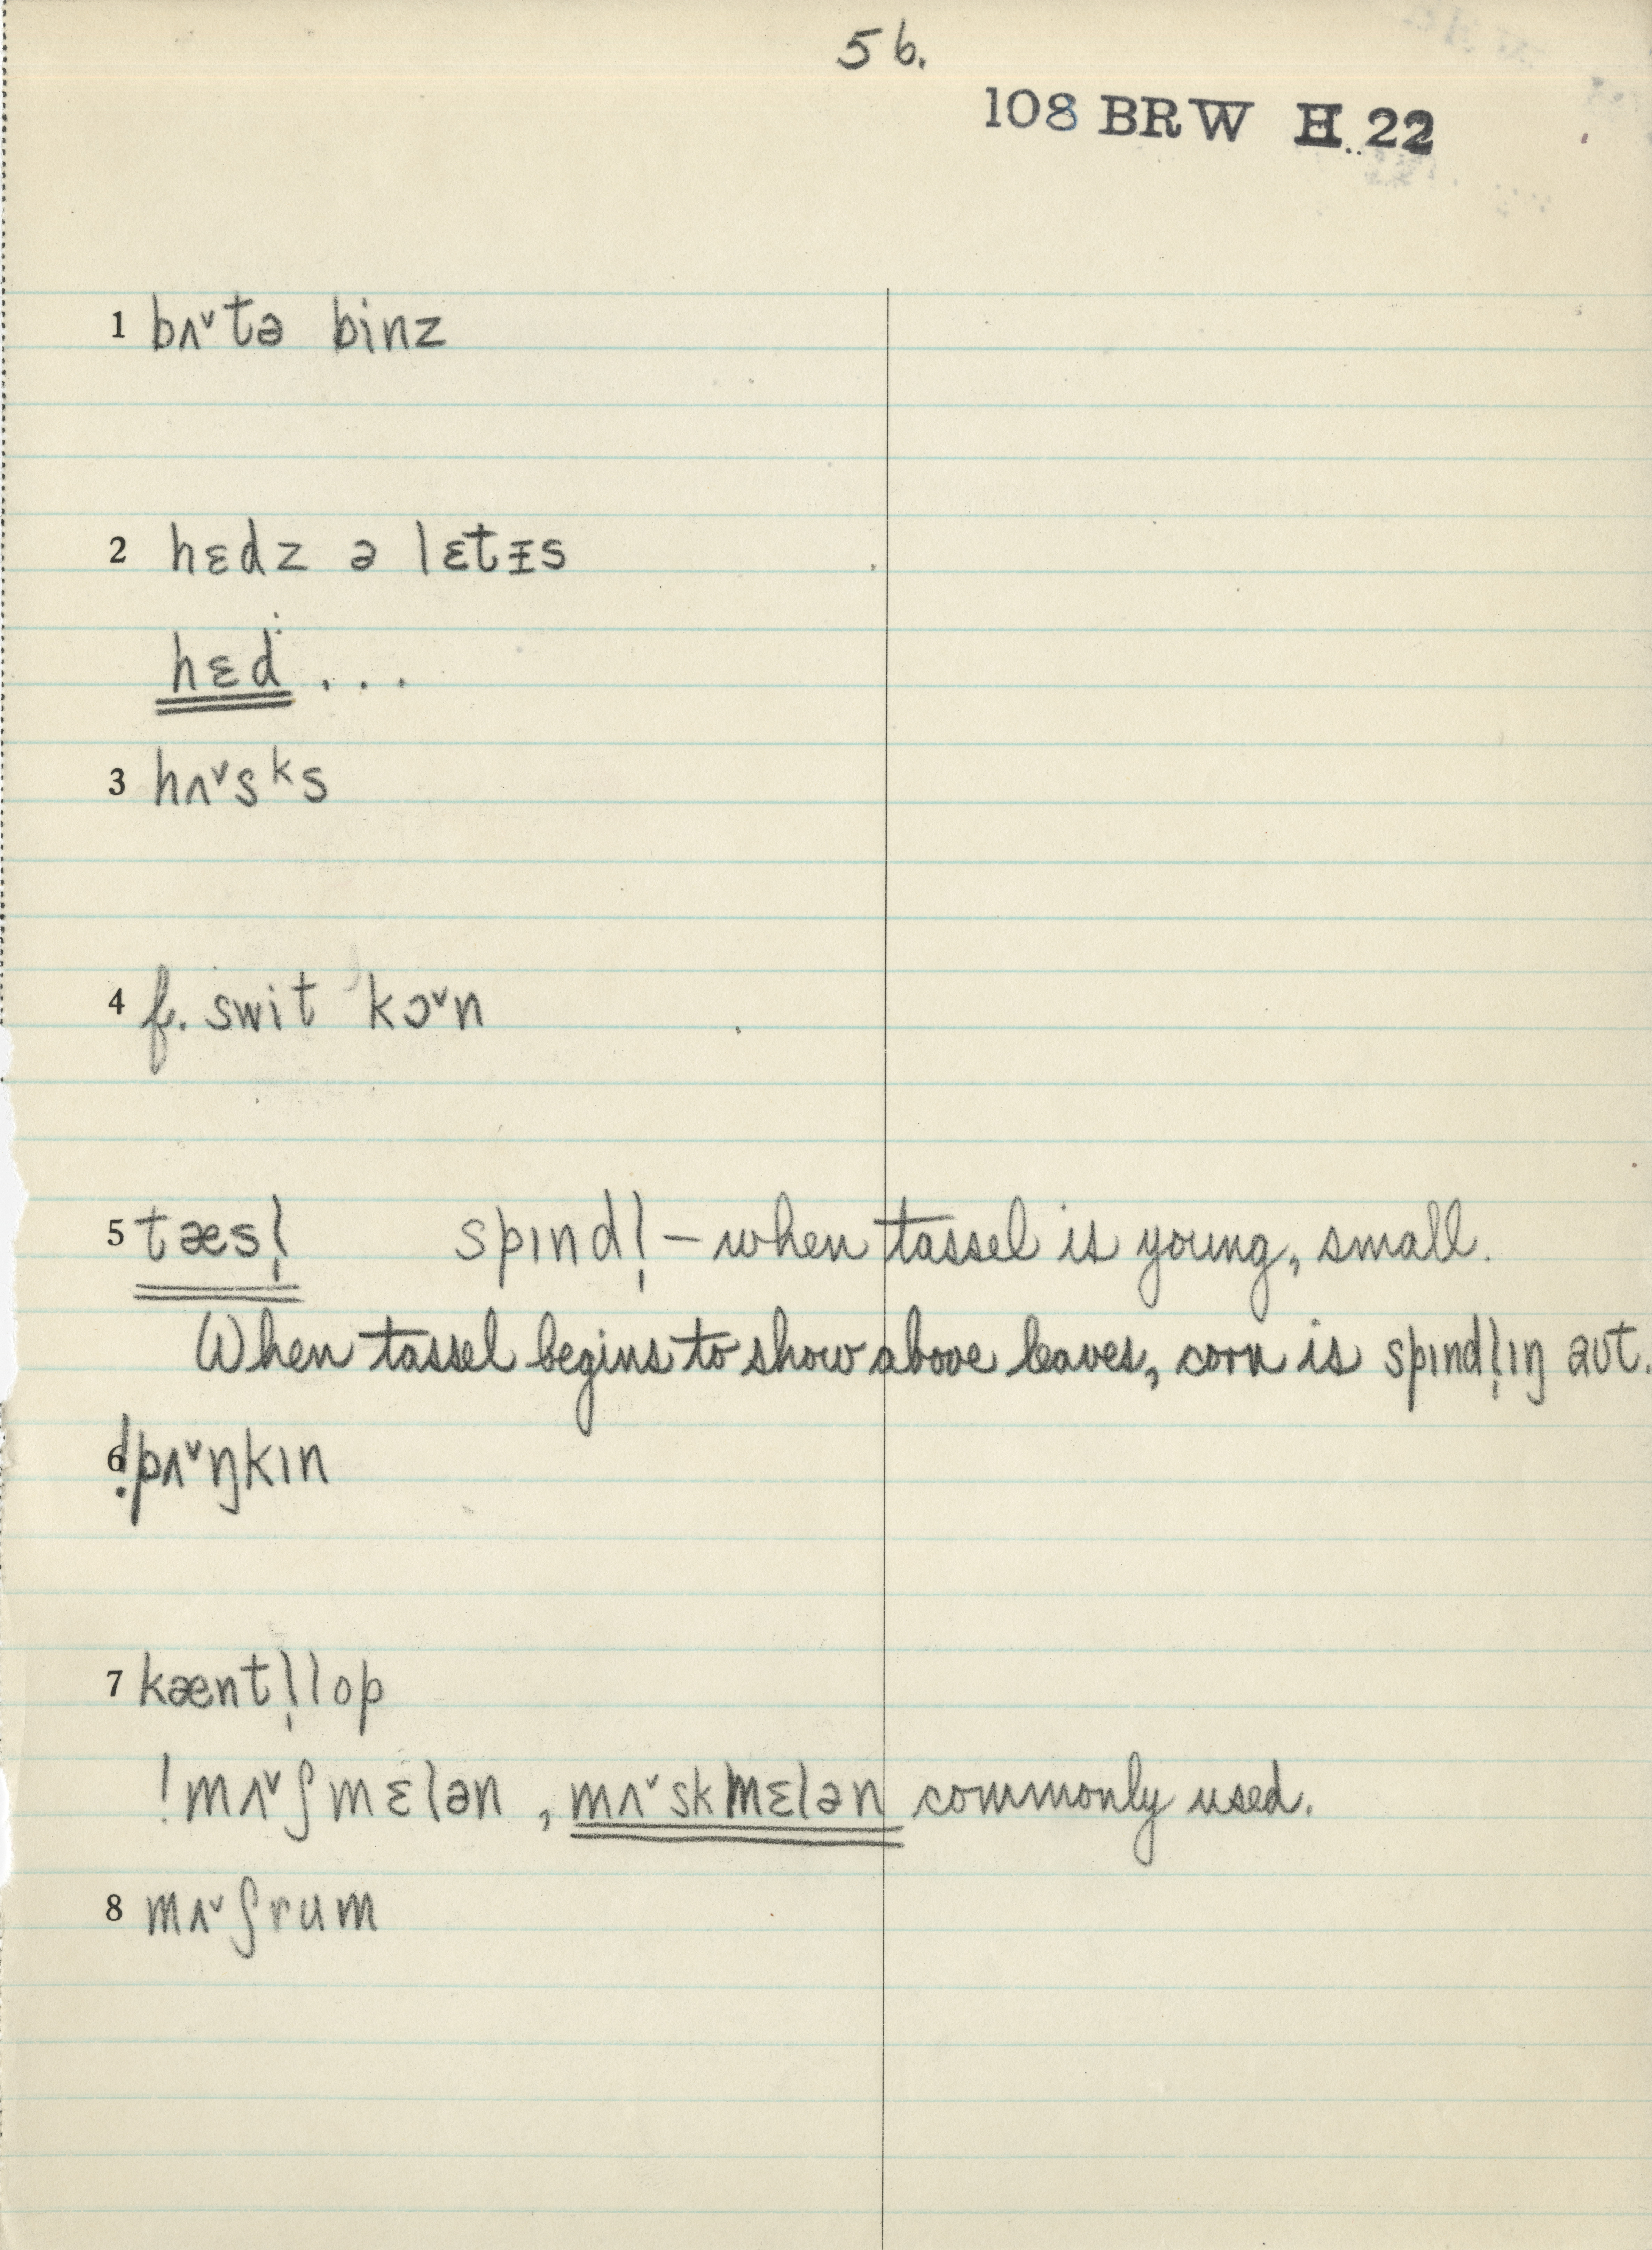 56.
108 BRW H. 22
1 bʌˇtə binz
2 hɛdz ə lɛtᵻs
hɛd . . .
3 hʌˇsᵏs
4 f. swit kɔˇn
5 tæsl̩ spɪndl̩ – when tassel is young, small.
When tassel begins to show above leaves, corn is spɪndl̩ɪŋ aʊt.
6 !pʌˇŋkɪn
7 kæntl̩lop
!mʌˇʃmɛlən, mʌˇskmɛlən commonly used.
8 mʌˇʃrum